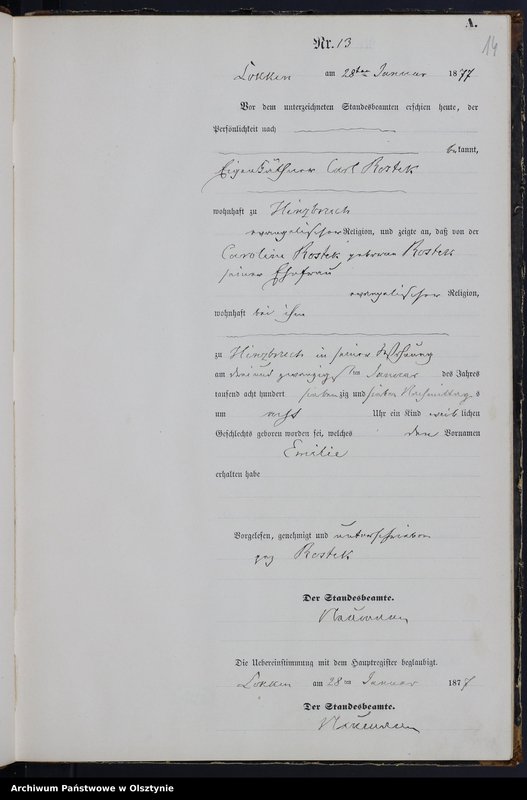 A.
14
Nr. 13
Lokken am 28ten Januar 1877
Vor dem unterzeichneten Standesbeamten erschien heute, der
Persönlichkeit nach
bekannt,
Eigenkäthner Carl Rostek
wohnhaft zu Hinzbruch
evangelischer Religion, und zeigte an, daß von der
Caroline Rostek geborene Rostek
seiner Ehefrau
evangelischer Religion,
wohnhaft bei ihm
zu Hinzbruch in seiner Wohnung
am drei und zwanzigsten Januar des Jahres
tausend acht hundert siebenzig und sieben Nachmittags
um acht Uhr ein Kind weiblichen
Geschlechts geboren worden sei, welches den Vornamen
Emilie
erhalten habe
Vorgelesen, genehmigt und unterschrieben
gez Rostek
Der Standesbeamte.
Die Uebereinstimmung mit dem Hauptregister beglaubigt.
Lokken am 28ten Januar 1877
Der Standesbeamte.
Archiwum Państwowe w Olsztynie